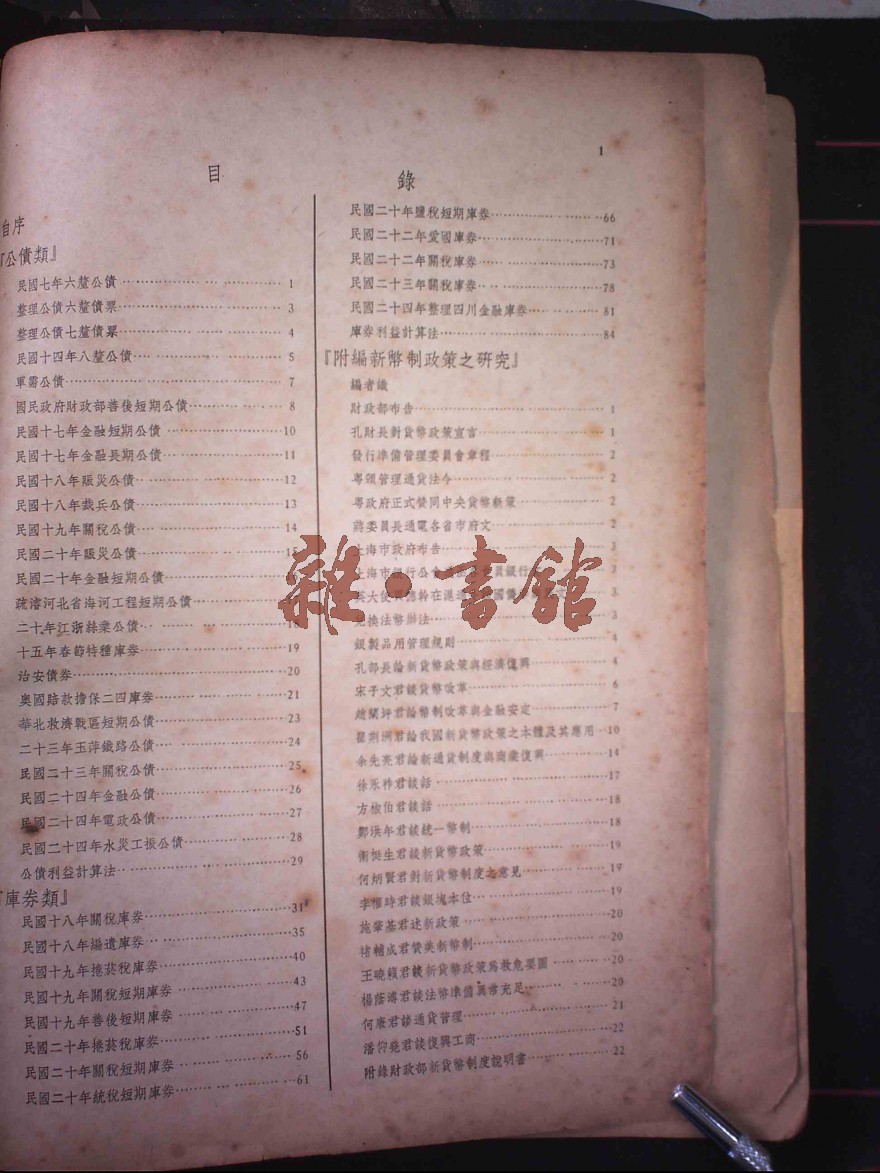 1
目 錄
自序
『公債類』
民國七年六釐公債 1
整理公債六釐債票 3
整理公債七釐債票 4
民國十四年八釐公債 5
軍需公債 7
國民政府財政部善後短期公債 8
民國十七年金融短期公債 10
民國十七年金融長期公債 11
民國十八年賑災公債 12
民國十八年裁兵公債 13
民國十九年關稅公債 14
民國二十年賑災公債 15
民國二十年金融短期公債
疏濬河北省海河工程短期公債
二十年江浙絲業公債 18
十五年春節特種庫券 19
治安債券 20
奧國賠款擔保二四庫券 21
華北救濟戰區短期公債 23
二十三年玉萍鐵路公債 24
民國二十三年關稅公債 25
民國二十四年金融公債 26
民國二十四年電政公債 27
民國二十四年水災工振公債 28
公債利益計算法 29
『庫券類』
民國十八年關稅庫券 31
民國十八年編遣庫券 35
民國十九年捲菸稅庫券 40
民國十九年關稅短期庫券 43
民國十九年善後短期庫券 47
民國二十年捲菸稅庫券 51
民國二十年關稅短期庫券 56
民國二十年統稅短期庫券 61
民國二十年鹽稅短期庫券 66
民國二十二年愛國庫券 71
民國二十二年關稅庫券 73
民國二十三年關稅庫券 78
民國二十四年整理四川金融庫券 81
庫券利益計算法 84
『附編新幣制政策之研究』
編者識
財政部布告 1
孔財長對貨幣政策宣言 1
發行準備管理委員會章程 2
粵頒管理通貨法令 2
粵政府正式贊同中央貨幣新策 2
蔣委員長通電各省市府文 2
上海市政府布告 3
上海市銀行公會 員銀行 3
英大使 在滬 國僑 文 3
兌換法幣辦法 3
銀製品用管理規則 4
孔部長論新貨幣政策與經濟復興 4
宋子文君談貨幣改革 6
趙蘭坪君論幣制改革與金融安定 7
瞿荆洲君論我國新貨幣政策之本體及其應用 10
余先亮君論新通貨制度與商業復興 14
徐永祚君談話 17
方椒伯君談話 18
鄭洪年君談統一幣制 18
衛挺生君談新貨幣政策 19
何炳賢君對新貨幣制度之意見 19
李權時君談銀塊本位 19
施肇基君述新政策 20
褚輔成君贊美新幣制 20
王曉籟君談新貨幣政策爲救危要圖 20
楊蔭溥君談法幣準備異常充足 20
何廉君談通貨管理 21
潘仰堯君談復興工商 22
附錄財政部新貨幣制度說明書 22
雜·書館